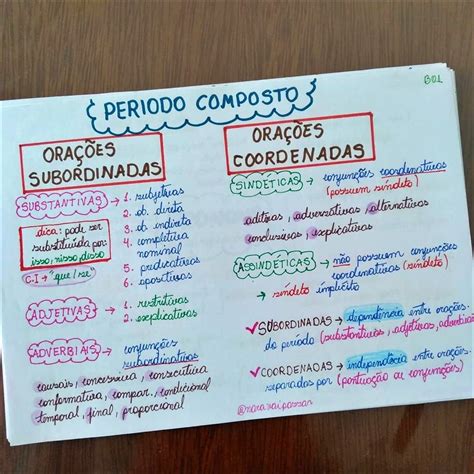 PERIODO COMPOSTO
B01
ORAÇÕES
SUBORDINADAS
SUBSTANTIVAS → 1. subjetivas
2. ob. direta
3. ob. indireta
4. completiva
nominal
5. predicativas
6. apositivas
dica: pode ser
substituída por:
isso, nisso, disso
C.I → "que/se"
ADJETIVAS → 1. restritivas
2. explicativas
ADVERBIAIS → conjunções
subordinativas
causais, concessiva, consecutiva
conformativa, compar. condicional
temporal, final, proporcional
ORAÇÕES
COORDENADAS
SINDÉTICAS → conjunções coordenativas
(possuem síndeto)
aditivas, adversativas, alternativas
conclusivas, explicativas
ASSINDÉTICAS → não possuem conjunções
coordenativas (síndeto)
→ síndeto implícito
✓ SUBORDINADAS → dependência entre orações
do período (substantivas, adjetivas, adverbiais)
✓ COORDENADAS → independência entre orações
separadas por (pontuação ou conjunções)
@naravaipassar